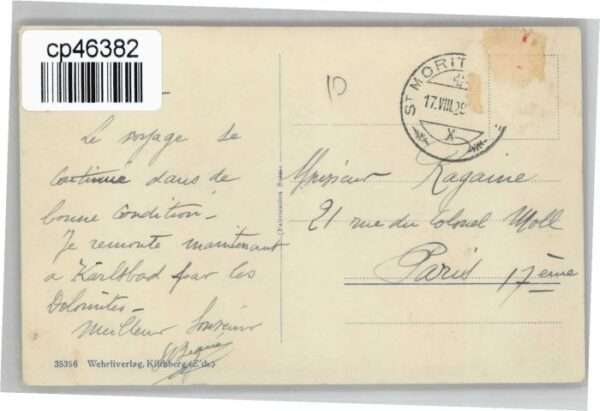 cp46382
ST MORITZ
17.VIII.29
X
Le voyage se
continue dans de
bonne condition -
Je remonte maintenant
à Karlsbad par les
Dolomites -
Meilleur Souvenir
Monsieur Ragaine
21 rue du Colonel Moll
Paris 17ème
35356 Wehrliverlag, Kilchberg (Zch.)